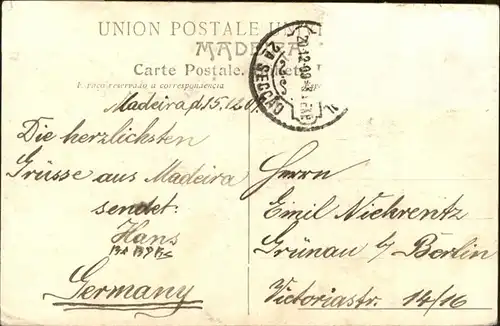 UNION POSTALE
MADEIRA
Carte Postale.
Espaço reservado a correspondencia
Madeira, d. 15.12.
2A SECÇÃO
20.12.09
Die herzlichsten
Grüsse aus Madeira
sendet.
Hans
Germany
Herrn
Emil Niehrentz
Grünau b/ Berlin
Victoriastr. 14/16